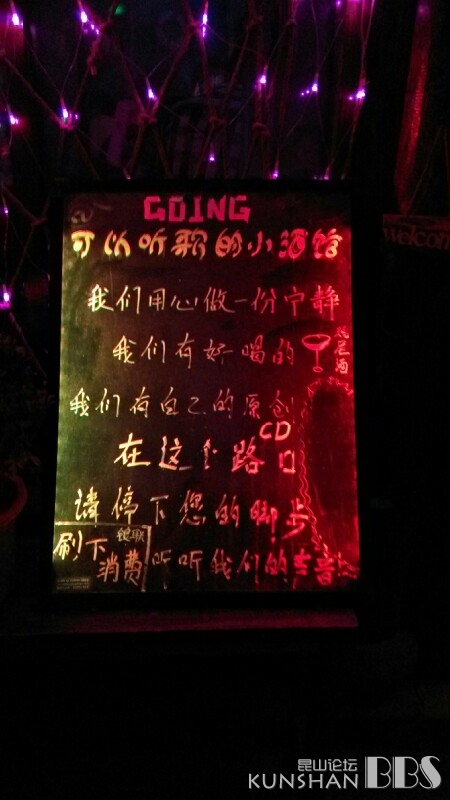 GOING
可以听歌的小酒馆
我们用心做一份宁静
我们有好喝的 鸡尾酒
我们有自己的原创
CD
在这个路口
请停下您的脚步
听听我们的声音
银联
刷下
消费
welcom
昆山论坛
KUNSHAN BBS